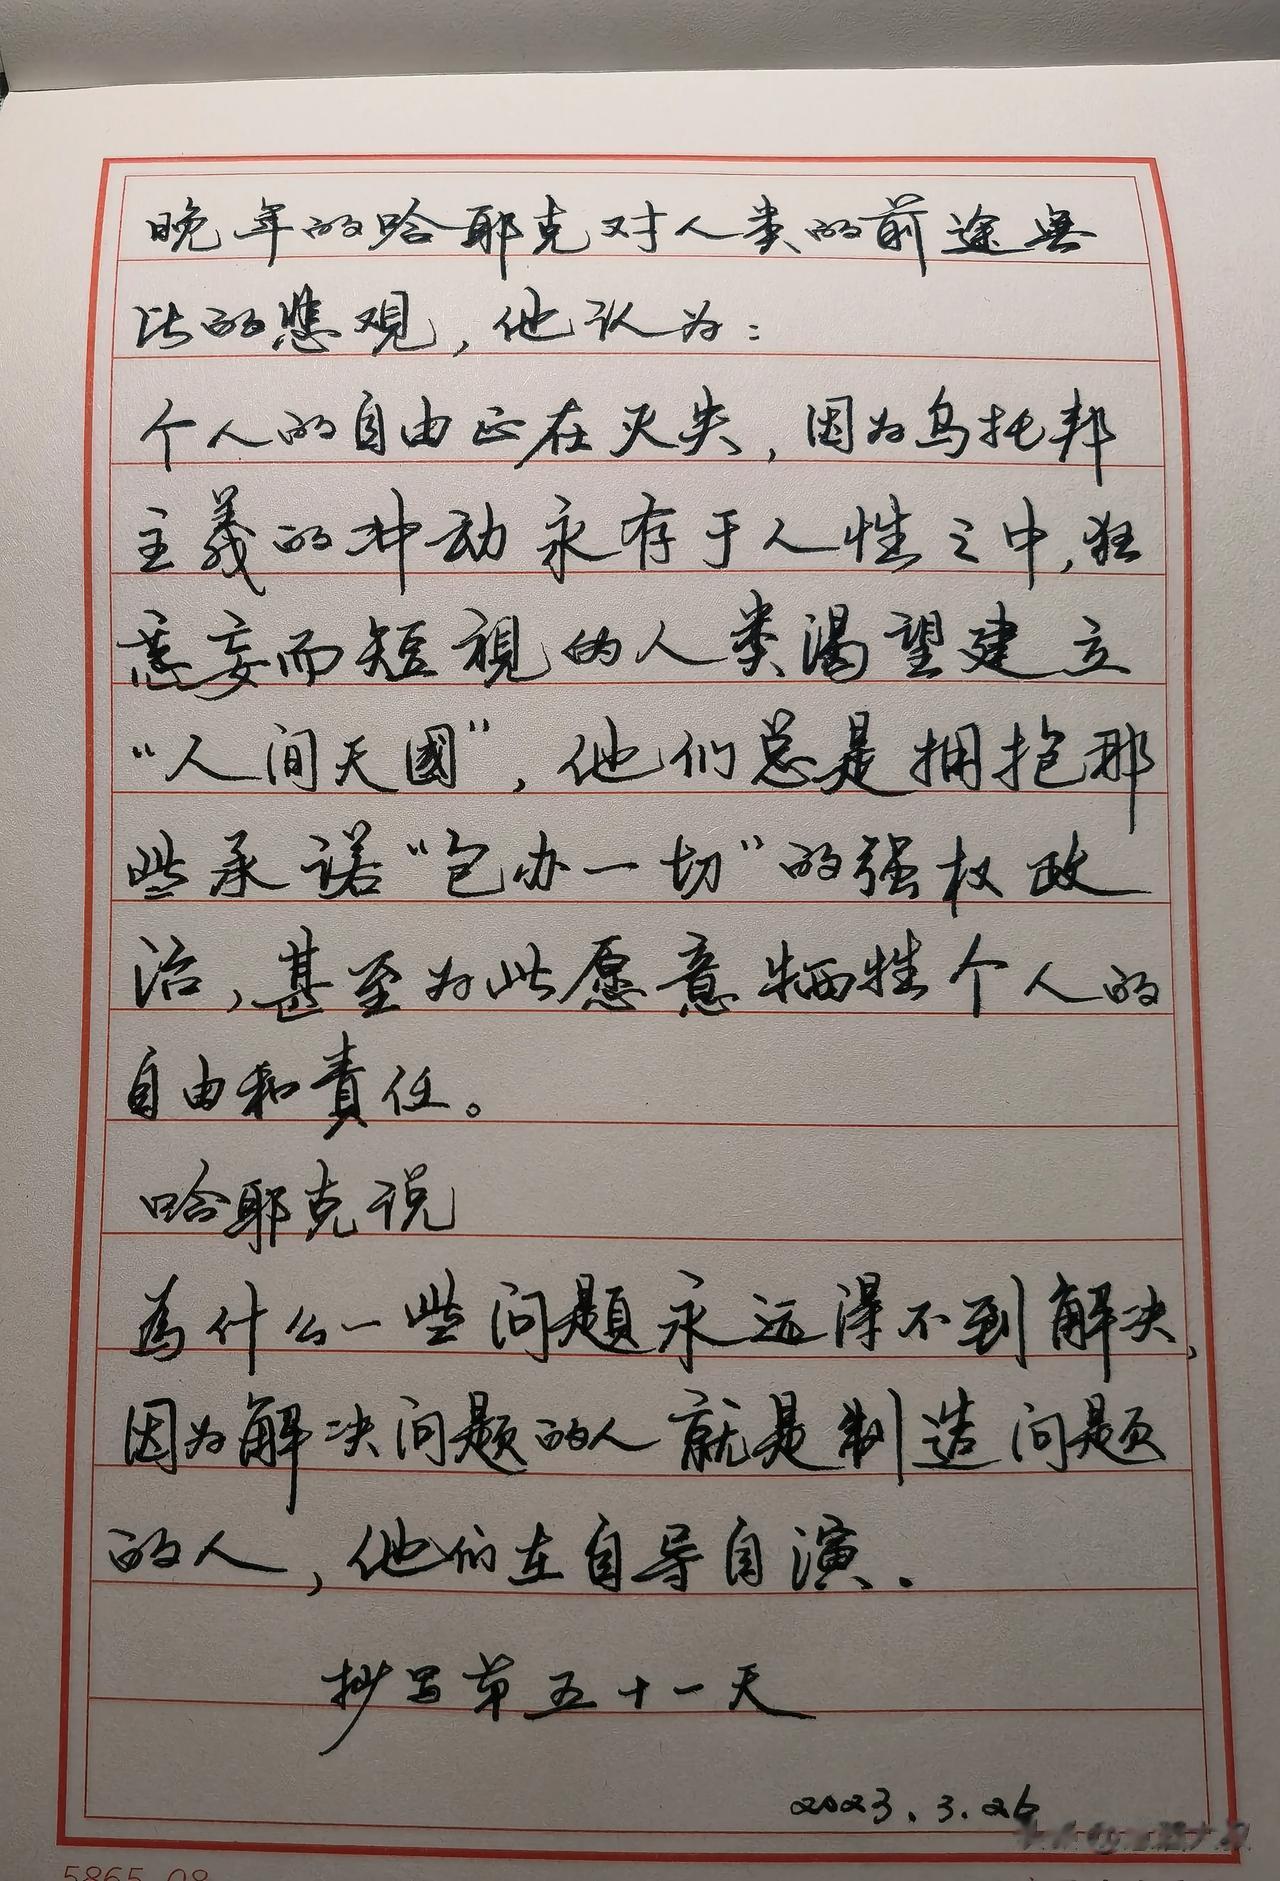 晚年的哈耶克对人类的前途無
比的悲观，他认为：
个人的自由正在灭失，因为乌托邦
主義的冲动永存于人性之中，狂
妄而短視的人类渴望建立
“人间天國”，他们总是拥抱那
些承诺“包办一切”的强权政
治，甚至为此愿意牺牲个人的
自由和責任。
哈耶克说
為什么一些问题永远得不到解决，
因为解决问题的人就是制造问题
的人，他们在自导自演.
抄写第五十一天
2023.3.26
5865-08